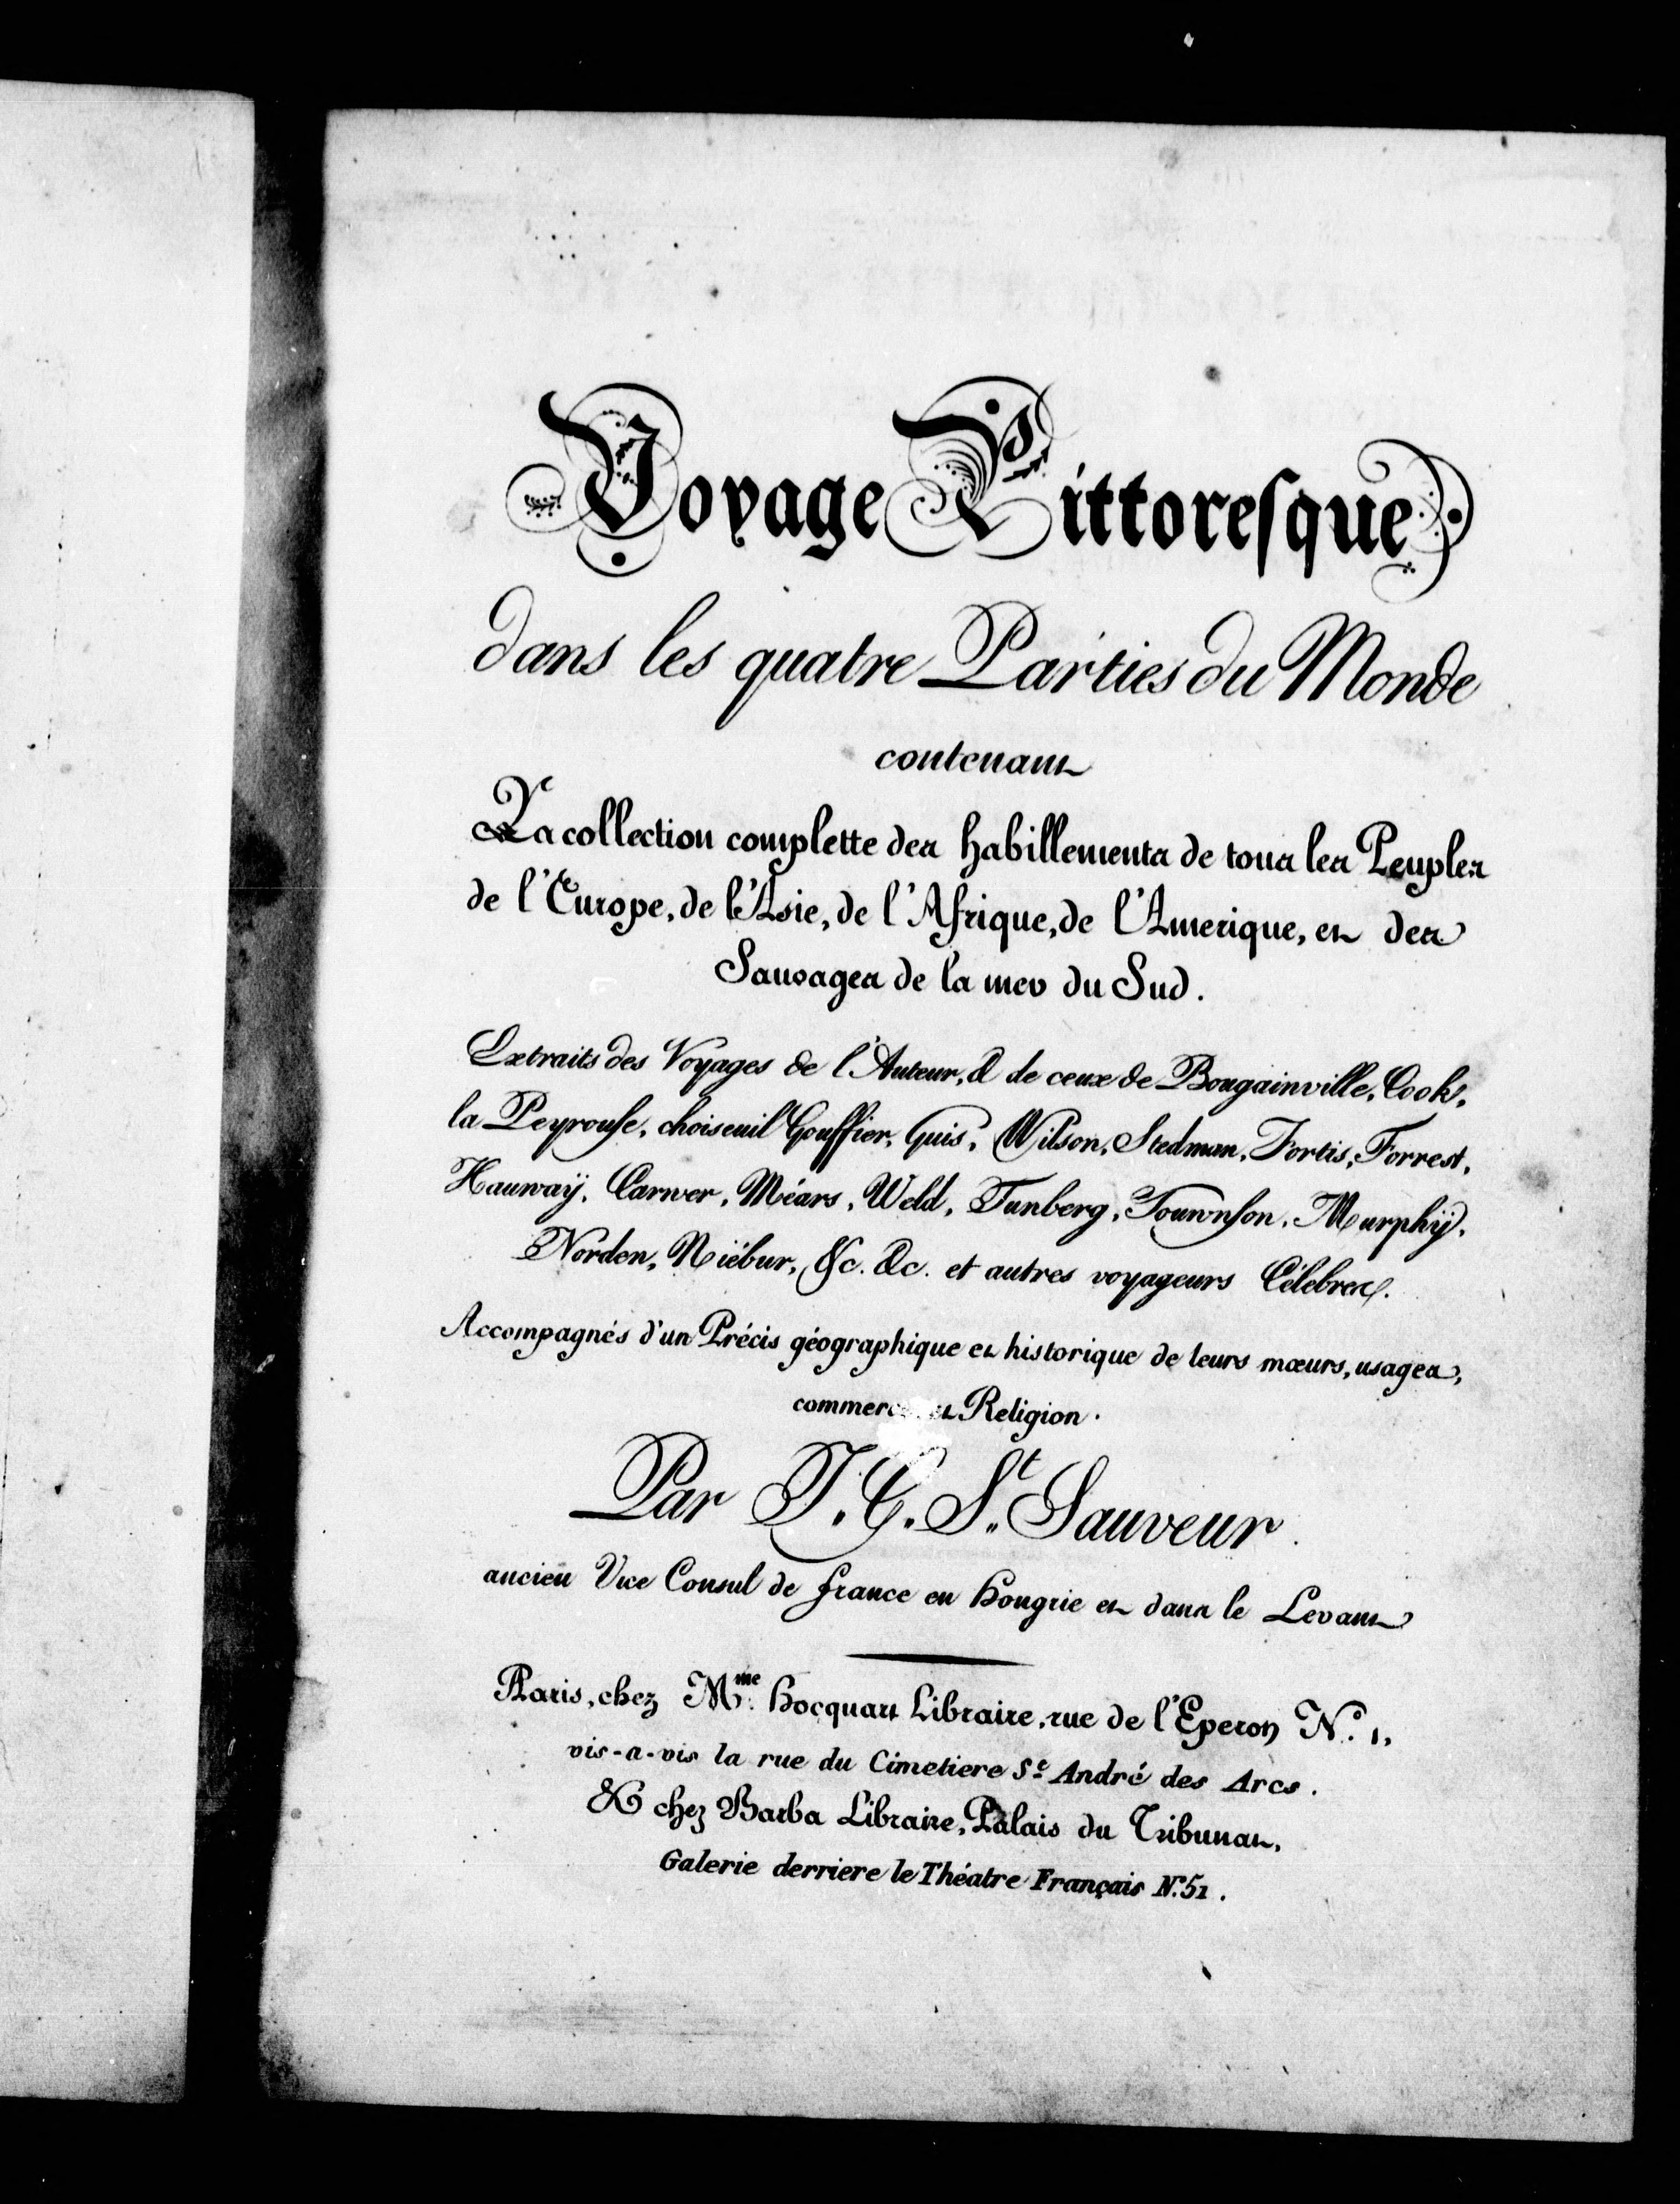 Voyage Pittoresque
dans les quatre Parties du Monde
contenant
La collection complette des habillements de tous les Peuples
de l'Europe, de l'Asie, de l'Afrique, de l'Amerique, et des
Sauvages de la mer du Sud.
Extraits des Voyages de l'Auteur, & de ceux de Bougainville, Cook,
la Peyrouse, choiseuil Gouffier, Guis, Wilson, Stedman, Fortis, Forrest,
Hauway, Carwer, Méars, Weld, Tunberg, Tounnson, Murphÿ,
Norden, Niébur, &c. &c. et autres voyageurs Célebres.
Accompagnés d'un Précis géographique et historique de leurs mœurs, usages,
commerce et Religion.
Par J. G. St. Sauveur
ancien Vice Consul de france en hongrie et dans le Levant
Paris, chez Mme. hocquart Libraire, rue de l'Eperon No. 1,
vis-a-vis la rue du Cimetiere St André des Arcs.
& chez Barba Libraire, Palais du Tribunat,
Galerie derriere le Théatre Français No. 51.